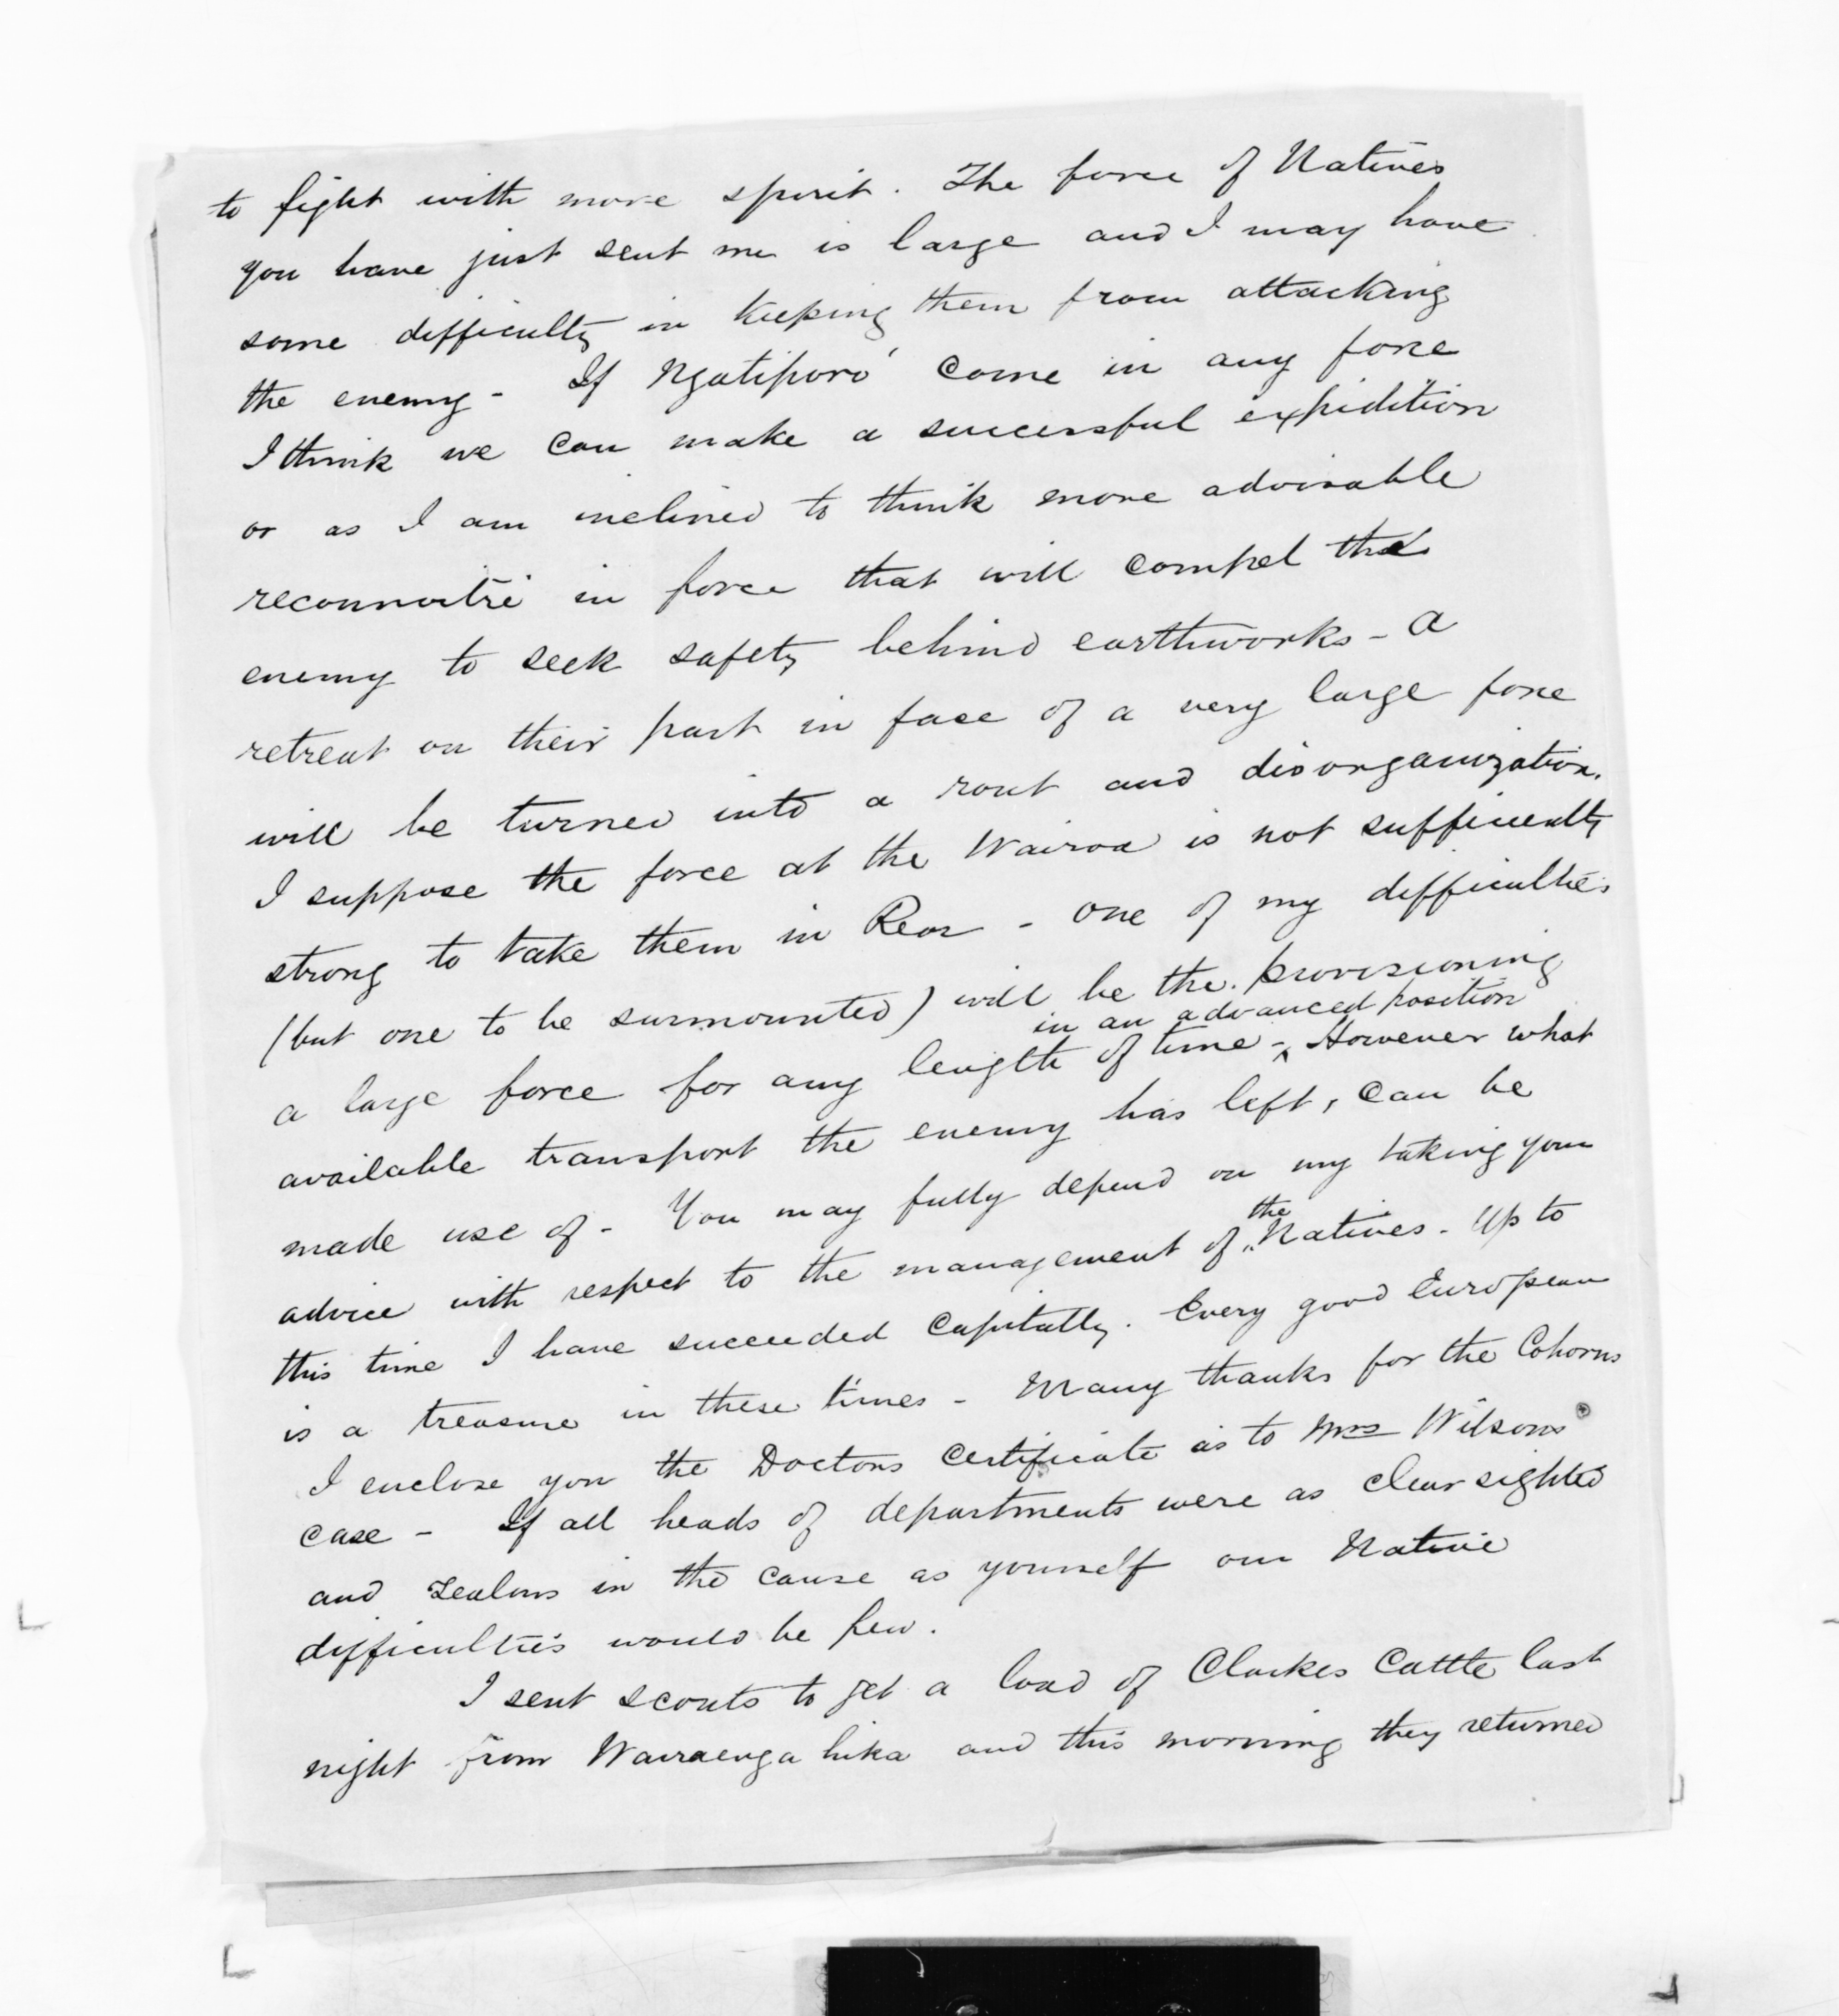 to fight with more spirit. The force of Natives
you have just sent me is large and I may have
some difficulty in keeping them from attacking
the enemy - If Ngatiporo' come in any force
I think we can make a successful expidition
or as I am inclined to think more advisable
reconnoitre in force that will compel the
enemy to seek safety behind earthworks - a
retreat on their part in face of a very large force
will be turned into a rout and disorganization.
I suppose the force at the Wairoa is not sufficiently
strong to take them in Rear - one of my difficulties
(but one to be surmounted) will be the provisioning
in an advanced position
a large force for any length of time - However what
available transport the enemy has left, can be
made use of - You may fully depend on my taking your
the
advice with respect to the management of Natives - Up to
this time I have succeeded capitally. Every good European
is a treasure in these times - Many thanks for the Cohorns
I enclose you the Doctors certificate as to Mrs Wilsons
case - If all heads of departments were as clear sighted
and zealous in the cause as yourself our Native
difficulties would be few.
I sent scouts to get a load of Clarkes Cattle last
night from Waeraenga hika and this morning they returned